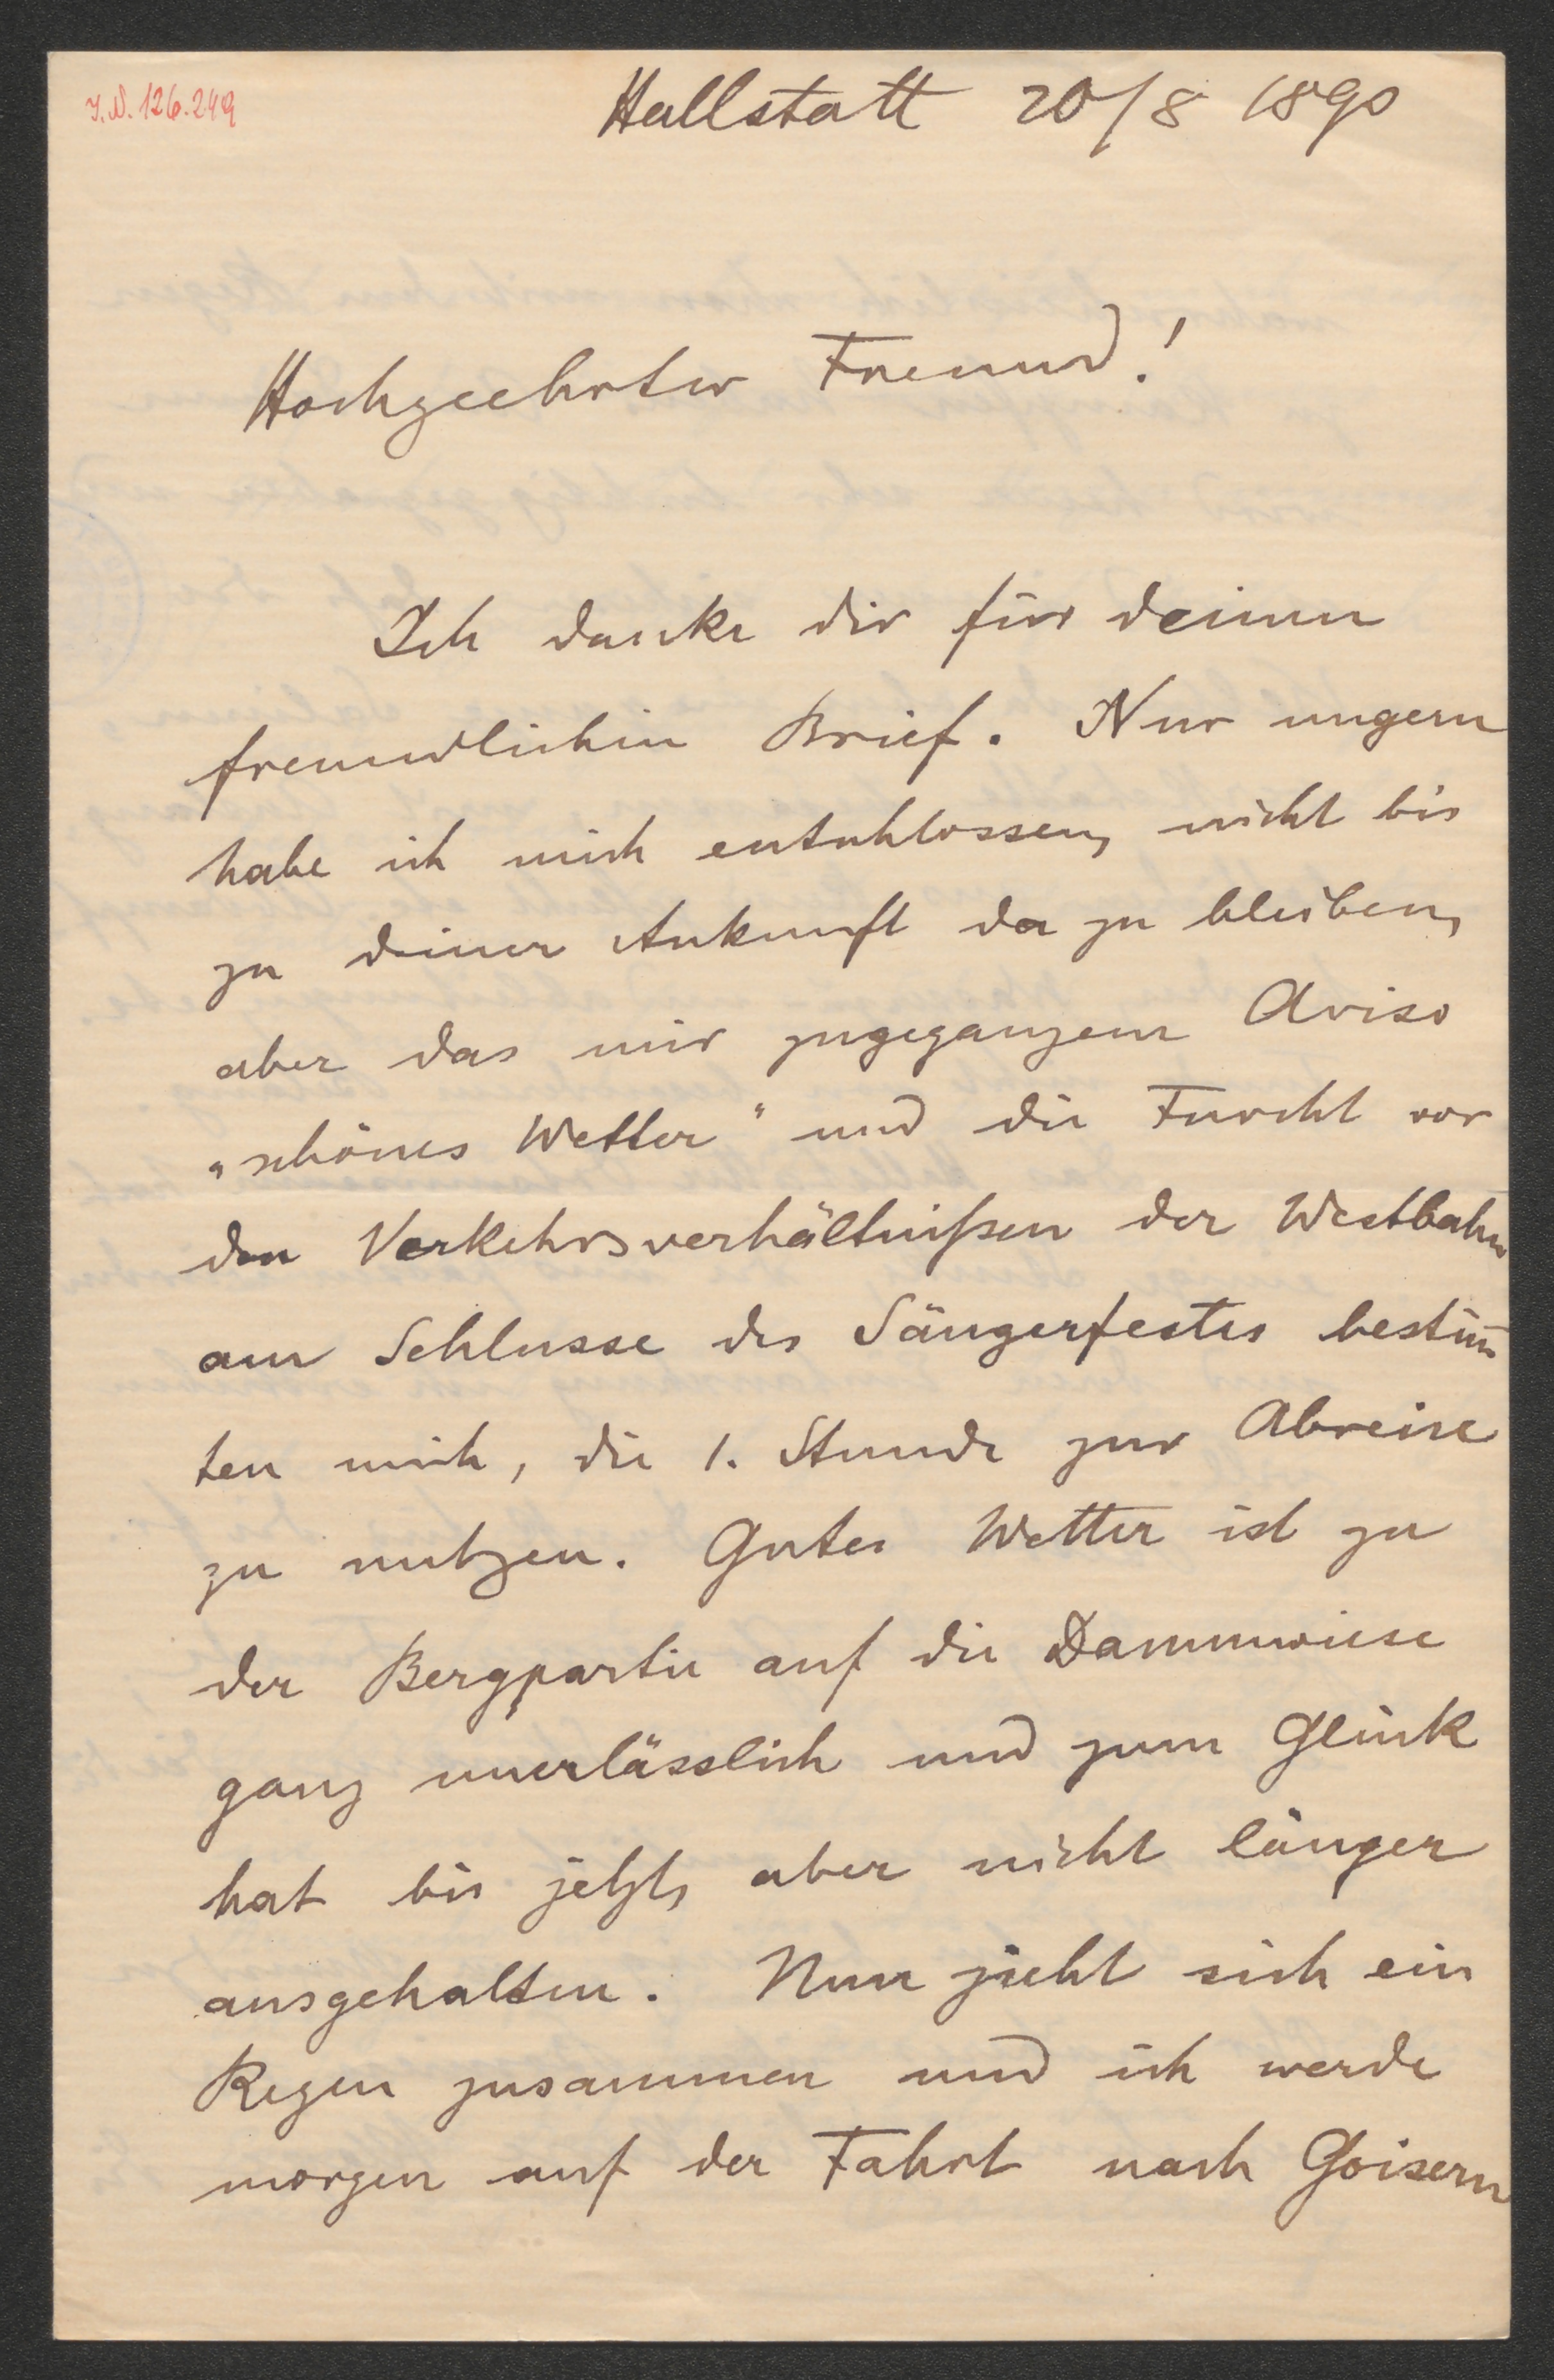 I.N. 126.249
Hallstatt 20/8 1890
Hochgeehrter Freund!
Ich danke dir für deinen
freundlichen Brief. Nur ungern
habe ich mich entschlossen, nicht bis
zu deiner Ankunft da zu bleiben,
aber das mir zugegangene Aviso
„schönes Wetter" und die Furcht vor
den Verkehrsverhältnißen der Westbahn
am Schlusse des Sängerfestes bestim̅
ten mich, die 1. Stunde zur Abreise
zu nutzen. Gutes Wetter ist zu
der Bergpartie auf die Dammwiese
ganz unerlässlich und zum Glück
hat bis jetzt, aber nicht länger
ausgehalten. Nun zieht sich ein
Regen zusammen und ich werde
morgen auf der Fahrt nach Goisern